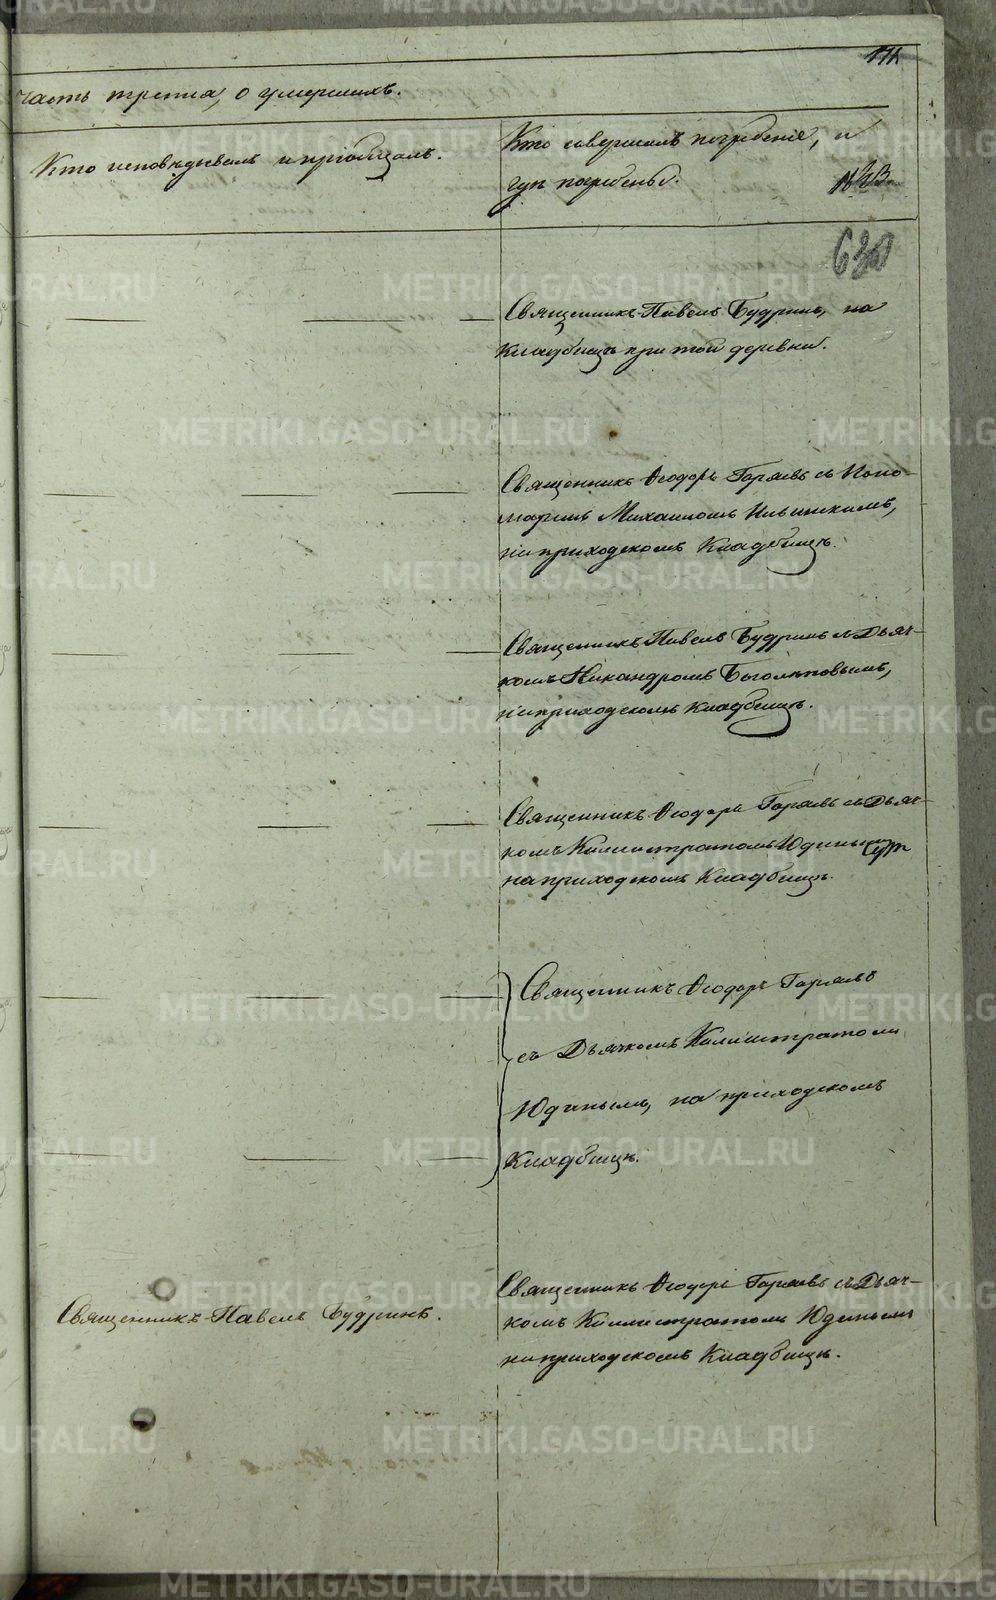 часть третія, о умершихъ.
Кто исповѣдывалъ и пріобщалъ.
Кто совершалъ погребеніе, и
гдѣ погребены.
630
Священникъ Павелъ Будринъ, на
кладбищѣ при той деревни.
Священникъ Ѳеодоръ Горяевъ съ Поно-
маремъ Михаиломъ Ильинскимъ,
на приходскомъ Кладбищѣ.
Священникъ Павелъ Будринъ съ Дьяч-
комъ Никандромъ Боголѣповымъ,
на приходскомъ кладбищѣ.
Священникъ Ѳеодоръ Горяевъ съ Дьяч-
комъ Каллистратомъ Юдинымъ
на приходскомъ Кладбищѣ.
Священникъ Ѳеодоръ Горяевъ
съ Дьячкомъ Калистратомъ
Юдинымъ, на приходскомъ
Кладбищѣ.
Священникъ Павелъ Будринъ.
Священникъ Ѳеодоръ Горяевъ съ Дьяч-
комъ Каллистратомъ Юдинымъ
на приходскомъ Кладбищѣ.
METRIKI.GASO-URAL.RU